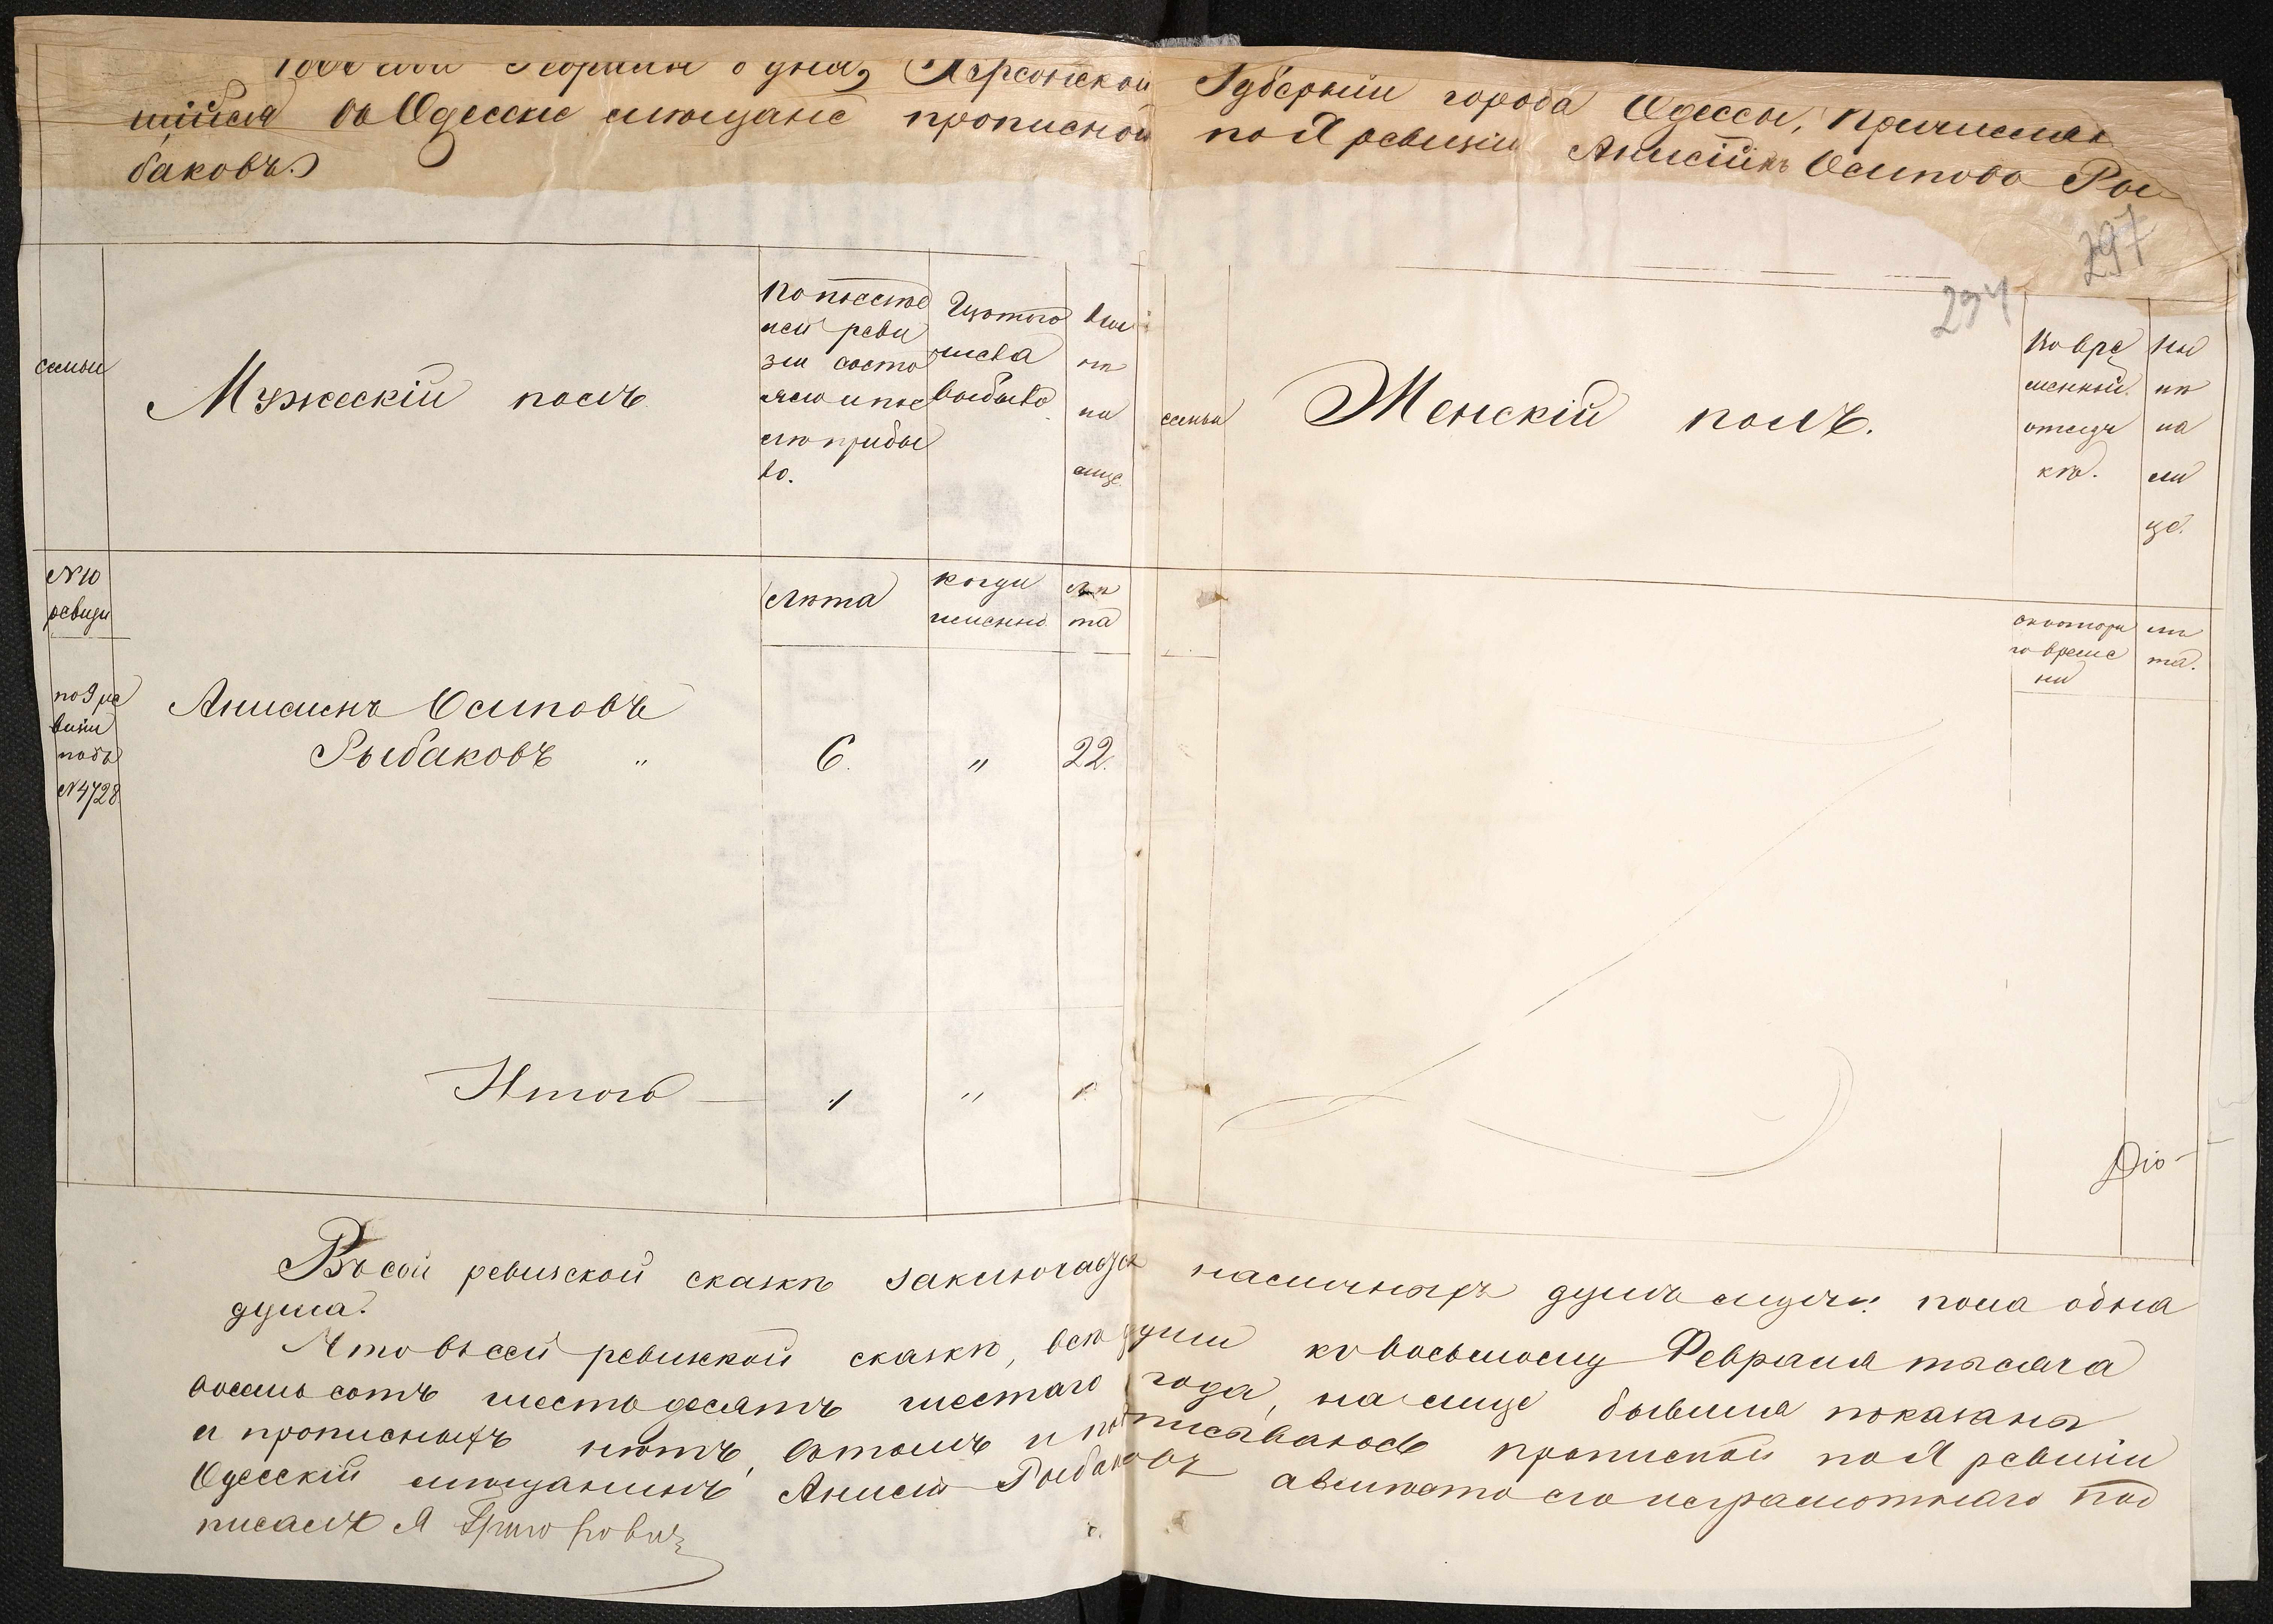 Херсонской Губерніи города Одессы, причислив
шійся въ Одесскіе мѣщане прописной по X ревизіи Анисимъ Осиповъ Ры
баковъ.
297
294
семьи
Мужескій полъ
По послѣд
ней реви
зіи состо
яло и пос
лѣ прибы
ло.
Изъ того
числа
выбыло
ны
нѣ
на
лице
семьи
Женскій полъ.
Во вре
менной
отлуч
кѣ.
Ны
нѣ
на
ли
це.
№ 10
ревизи
Лѣта
когда
именно
лѣ
та
съ котора
го време
ни
лѣ
та.
по 9 ре
визіи
подъ
№ 4728
Анисимъ Осиповъ
Рыбаковъ " 6. " 22.
Итого — 1 " 1
Въ сей ревизской сказкѣ заключается наличныхъ душъ мужск: пола одна
душа.
Что въ сей ревизской сказкѣ, всѣ души къ восьмому Февраля тысяча
восемь сотъ шестьдесятъ шестаго года, на лице бывшія показаны
и прописныхъ нѣтъ, въ томъ и подписываюсь прописной по X ревизіи
Одесскій мѣщанинъ Анисим Рыбаковъ а вмѣсто его неграмотнаго под
писалъ Я Григорович